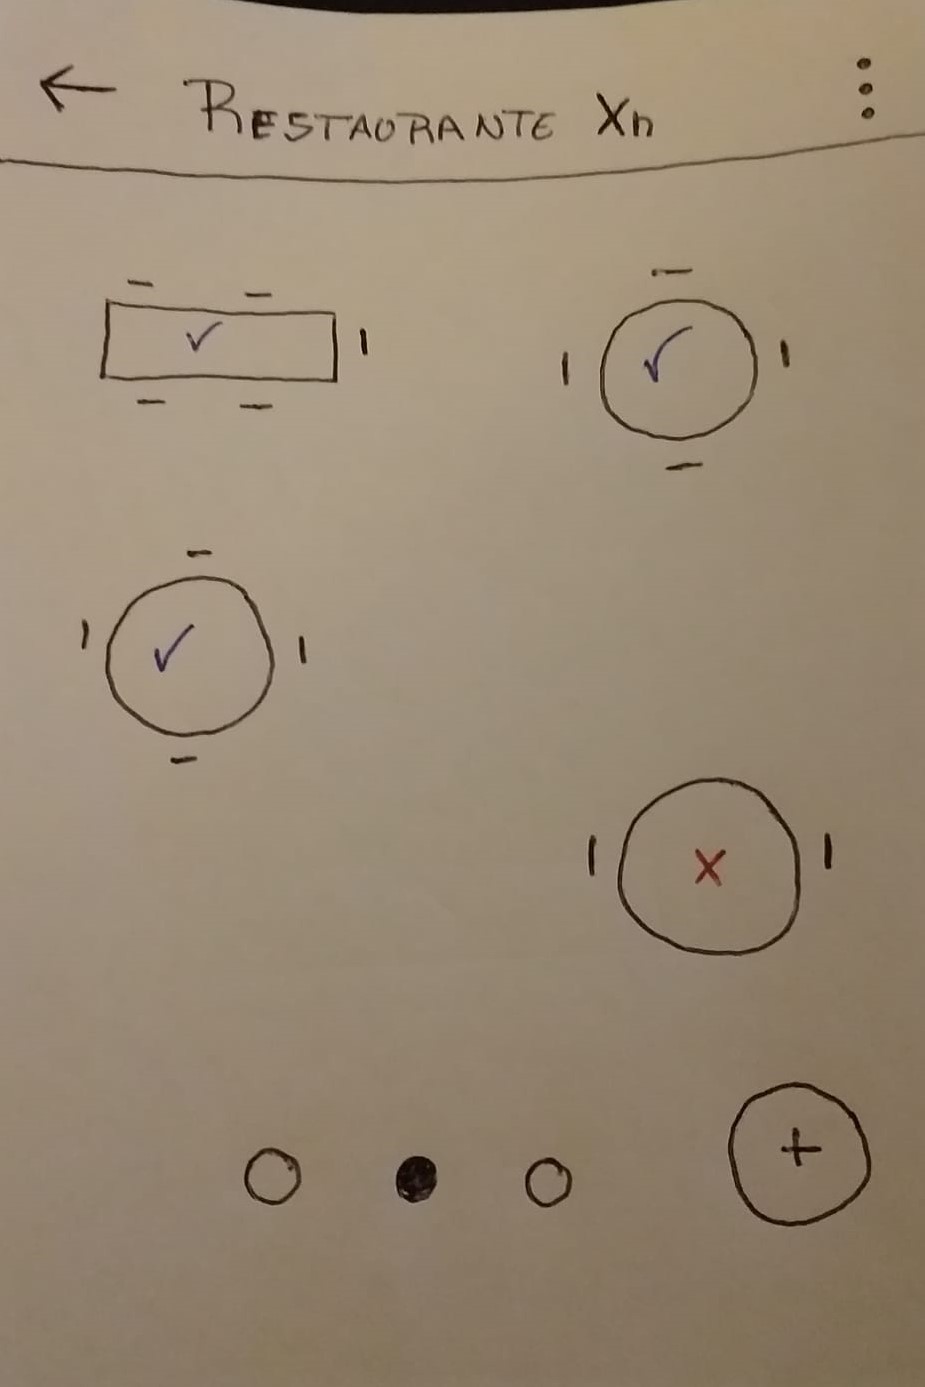 RESTAURANTE Xn